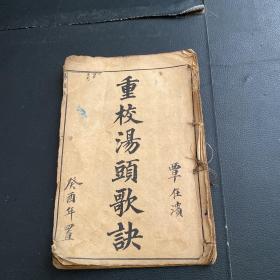 覃任濱
重校湯頭歌訣
癸酉年置